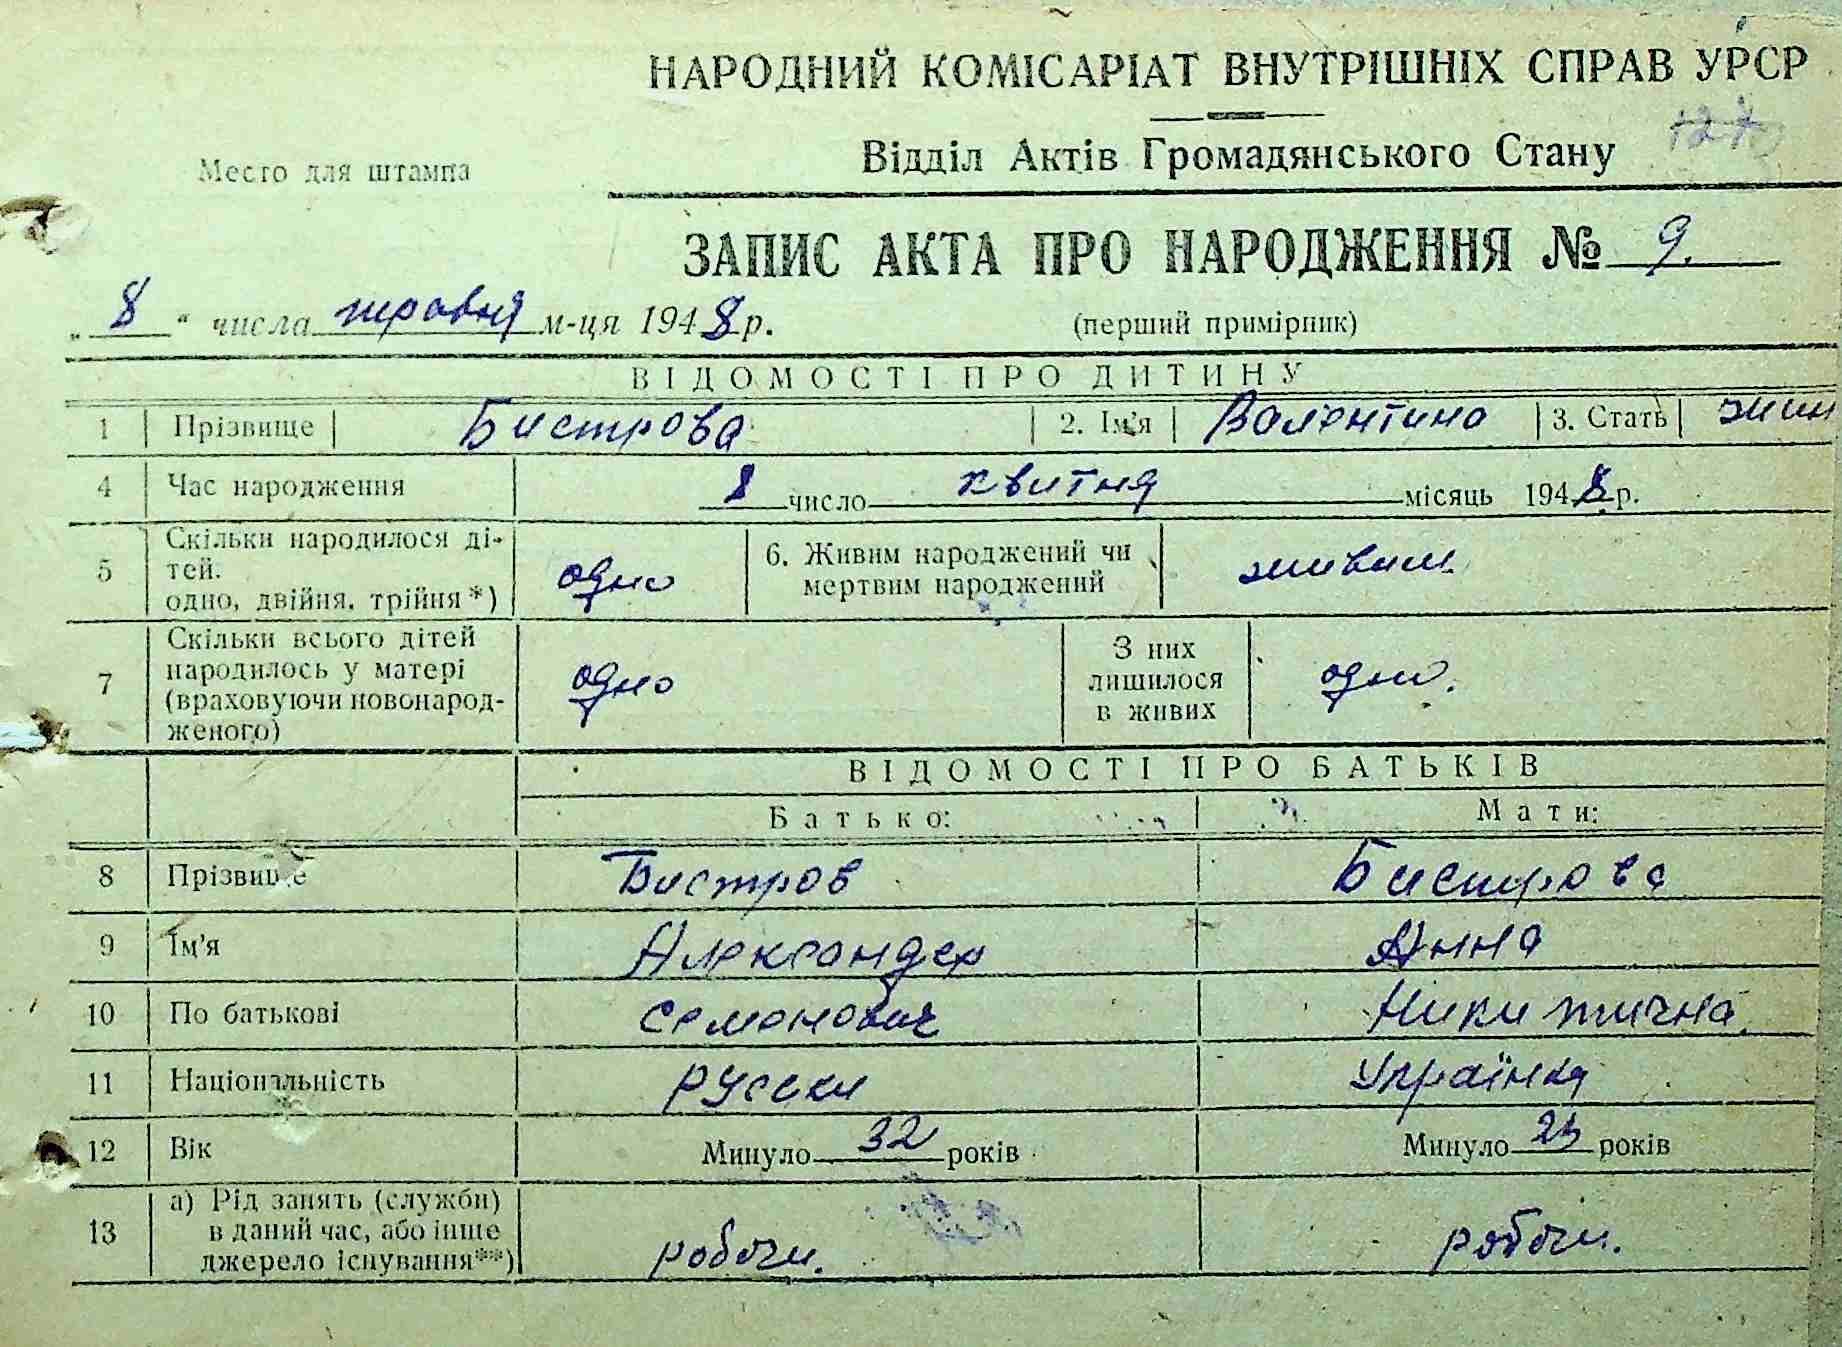 НАРОДНИЙ КОМІСАРІАТ ВНУТРІШНІХ СПРАВ УРСР
Место для штампа
Відділ Актів Громадянського Стану
ЗАПИС АКТА ПРО НАРОДЖЕННЯ № 9.
„8“ числа травня м-ця 1948 р.
(перший примірник)
ВІДОМОСТІ ПРО ДИТИНУ
1 Прізвище Бистрова 2. Ім'я Валентина 3. Стать жін
4 Час народження 8 число квитня місяць 1948 р.
5 Скільки народилося ді-
тей.
одно, двійня, трійня*) одно
6. Живим народжений чи
мертвим народжений живим.
7 Скільки всього дітей
народилось у матері
(враховуючи новонарод-
женого) одно
З них
лишилося
в живих одно.
ВІДОМОСТІ ПРО БАТЬКІВ
Батько: Мати:
8 Прізвище Бистров Бистрова
9 Ім'я Александер Анна
10 По батькові Семенович Никитична.
11 Національність русски Українка
12 Вік Минуло 32 років Минуло 23 років
13 а) Рід занять (служби)
в даний час, або інше
джерело існування**) робочи. робочи.